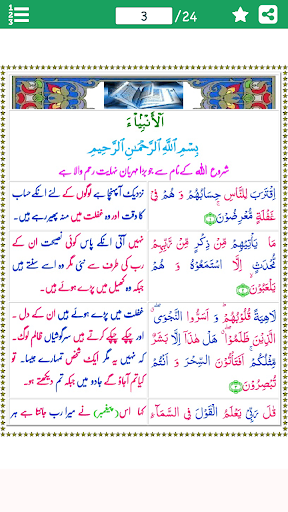 1
2
3
3
/24
اَلْأَنْبِيَآء
بِسْمِ اللَّهِ الرَّحْمَٰنِ الرَّحِيمِ
شروع اللہ کے نام سے جو بڑا مہربان نہایت رحم والا ہے
اِقْتَرَبَ لِلنَّاسِ حِسَابُهُمْ وَ هُمْ فِیْ
غَفْلَةٍ مُّعْرِضُوْنَ ﴿١﴾
نزدیک آ پہنچا ہے لوگوں کے لئے انکے حساب
کا وقت اور وہ غفلت میں منہ پھیر رہے ہیں۔
مَا يَاْتِيْهِمْ مِّنْ ذِكْرٍ مِّنْ رَّبِّهِمْ
مُّحْدَثٍ اِلَّا اسْتَمَعُوْهُ وَ هُمْ
يَلْعَبُوْنَ ﴿٢﴾
نہیں آتی انکے پاس کوئی نصیحت ان کے
رب کی طرف سے نئی مگر وہ اسے سنتے ہیں
جبکہ وہ کھیل میں پڑے ہوئے ہیں۔
لَاهِيَةً قُلُوْبُهُمْ ۚ وَ اَسَرُّوا النَّجْوَى ۖ
الَّذِيْنَ ظَلَمُوْا ۖ هَلْ هٰذَآ اِلَّا بَشَرٌ
مِّثْلُكُمْ ۚ اَفَتَاْتُوْنَ السِّحْرَ وَ اَنْتُمْ
تُبْصِرُوْنَ ﴿٣﴾
غفلت میں پڑے ہوئے ہیں ان کے دل۔
اور چپکے چپکے کرتے ہیں سرگوشیاں ظالم لوگ۔
نہیں ہے یہ مگر ایک شخص تمہارے جیسا۔ تو
کیا تم آجاؤ گے جادو میں جبکہ تم دیکھتے ہو۔
قٰلَ رَبِّيْ يَعْلَمُ الْقَوْلَ فِی السَّمَآءِ
کہا اس (پیغمبر) نے میرا رب جانتا ہے ہر